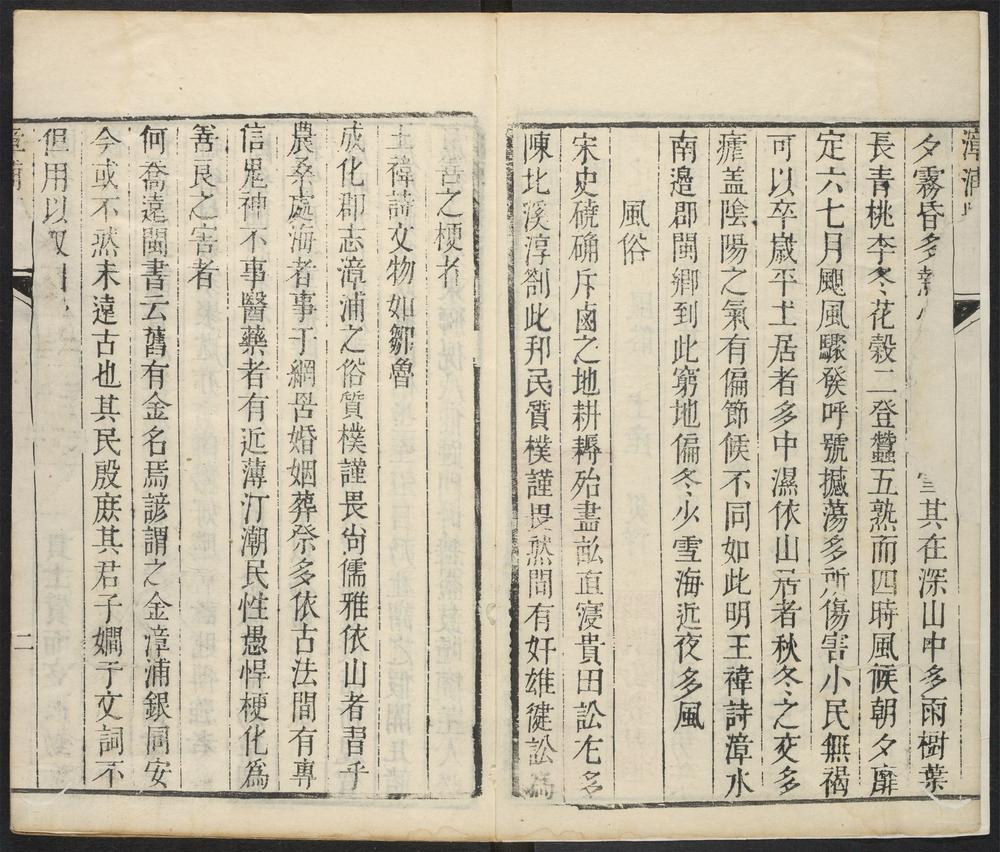 漳浦
夕霧昏多 其在深山中多雨樹葉
長青桃李冬花穀二登蠶五熟而四時風候朝夕靡
定六七月颶風驟發呼號撼蕩多所傷害小民無褐
可以卒歲平土居者多中濕依山居者秋冬之交多
瘧盖陰陽之氣有偏節候不同如此明王禕詩漳水
南邉郡閩鄉到此窮地偏冬少雪海近夜多風
風俗
宋史磽确斥鹵之地耕耨殆盡畝直寖貴田訟尤多
陳北溪淳劄此邦民質樸謹畏然間有奸雄健訟爲
善之梗者
王禕詩文物如鄒魯
成化郡志漳浦之俗質樸謹畏尚儒雅依山者習乎
農桑處海者事于網罟婚姻葬祭多依古法間有專
信鬼神不事醫藥者有近薄汀潮民性愚悍梗化爲
善良之害者
何喬遠閩書云舊有金名焉諺謂之金漳浦銀同安
今或不然未遠古也其民殷庶其君子嫺于文詞不
但用以取
二